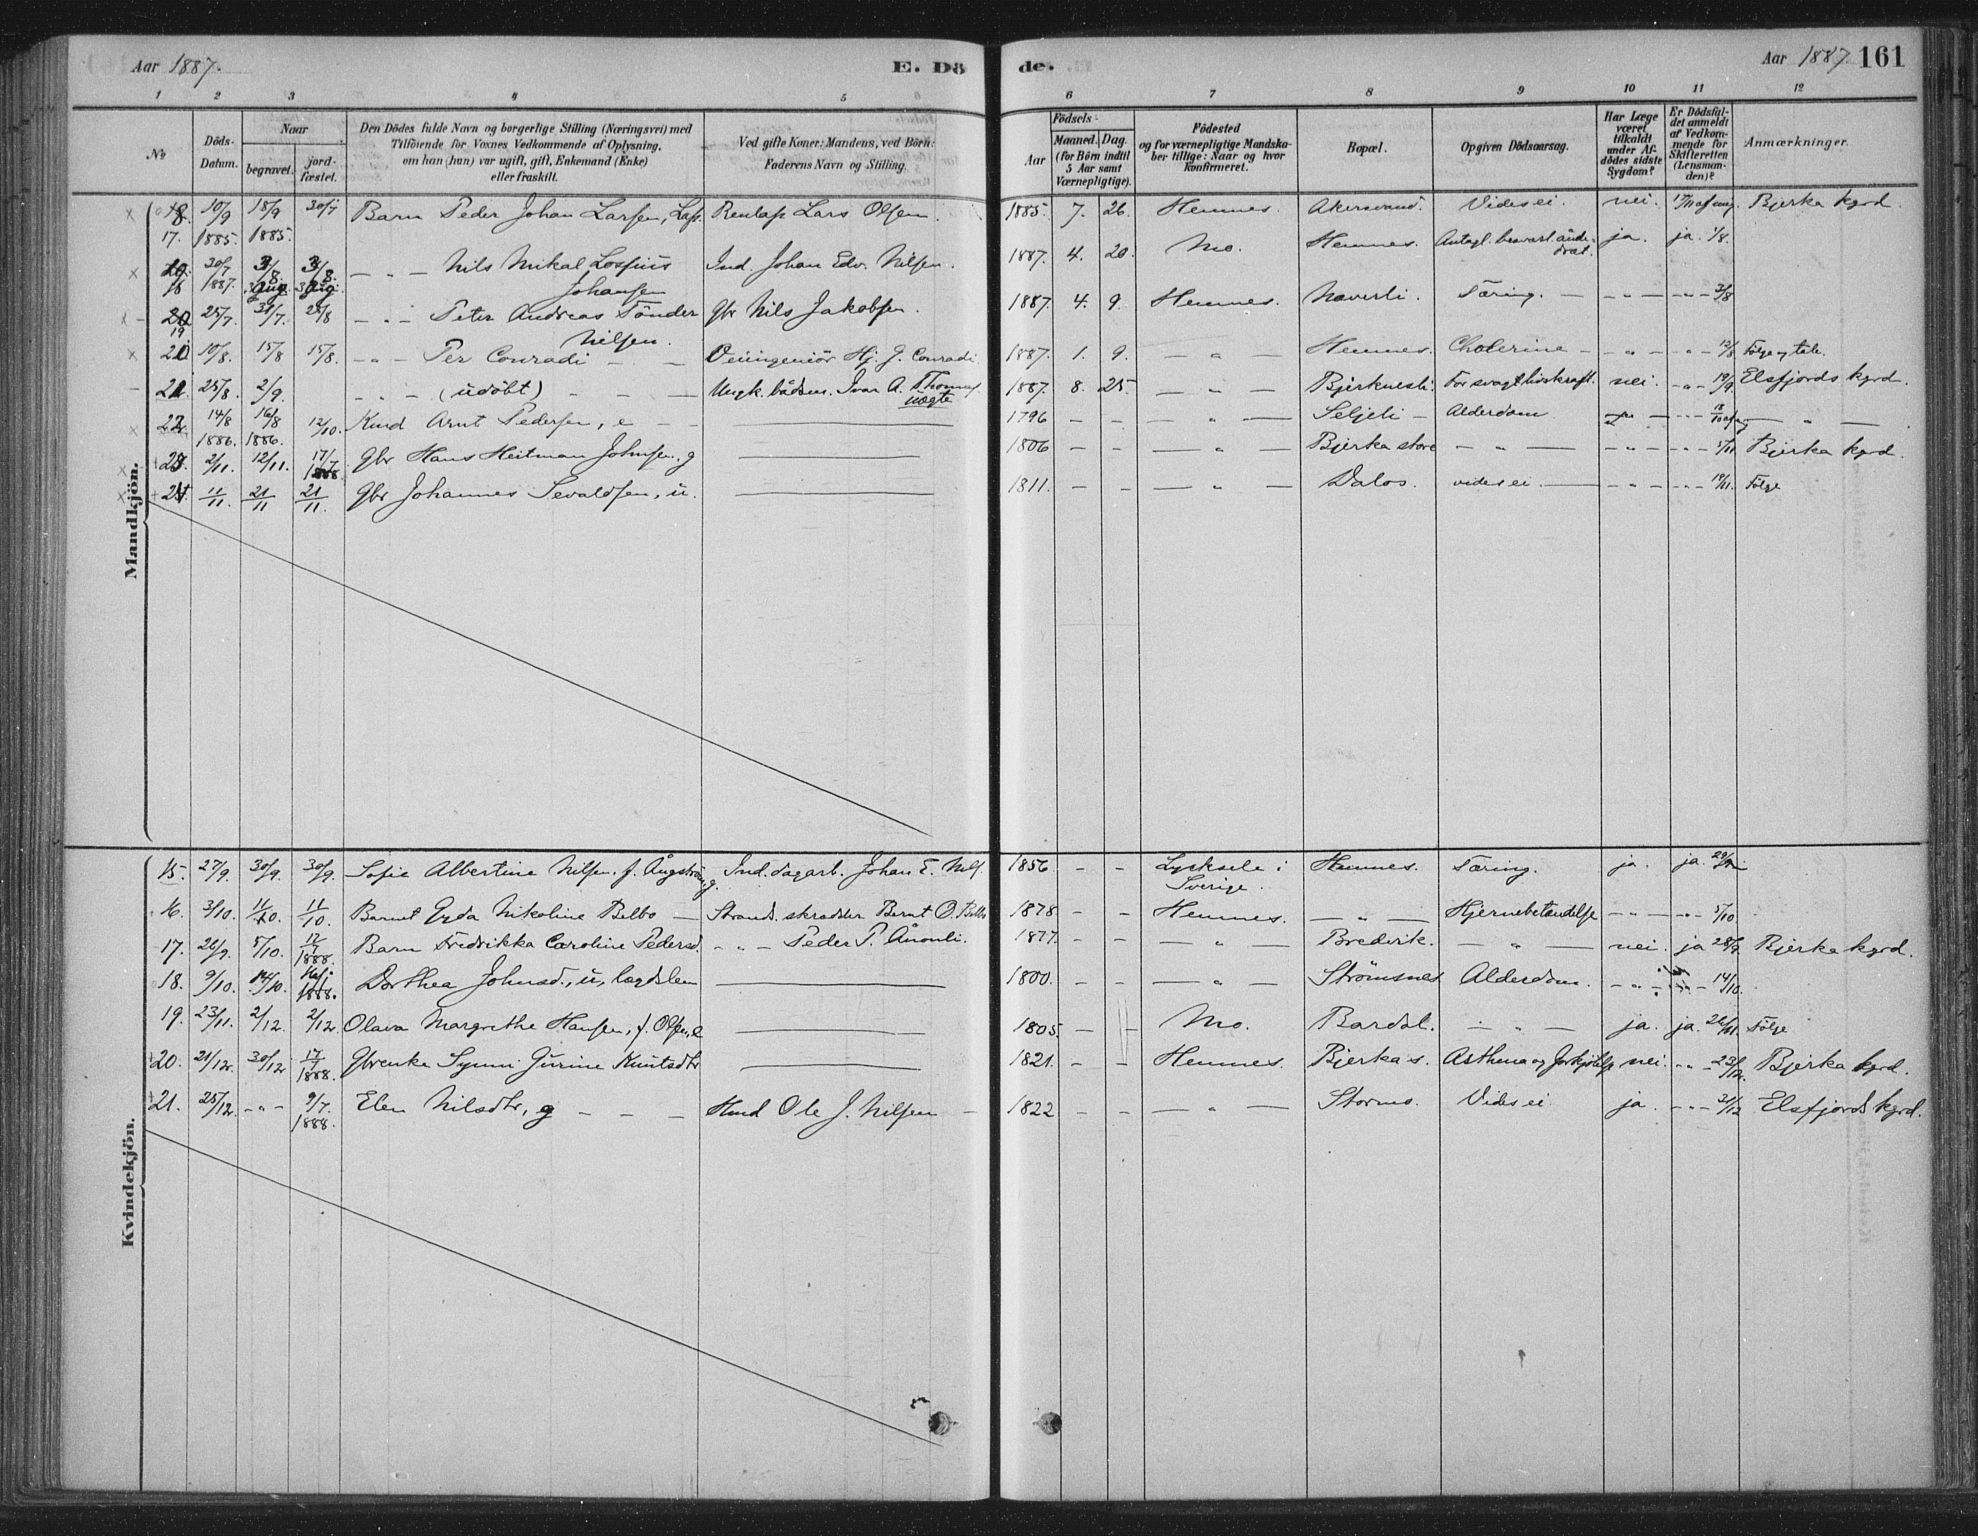 Aar 1887.
E. Döde.
Aar 1887. 161
1 2 3 4 5 6 7 8 9 10 11 12
No
Döds-Datum.
Naar
begravet.
jordfæstet.
Den Dödes fulde Navn og borgerlige Stilling (Næringsvei) med
Tilföiende for Voxnes Vedkommende af Oplysning,
om han (hun) var ugift, gift, Enkemand (Enke)
eller fraskilt.
Ved gifte Koner: Mandens, ved Börn:
Faderens Navn og Stilling.
Födsels-
Aar
Maaned. Dag.
(for Börn indtil
5 Aar samt
Værnepligtige).
Födested
og for værnepligtige Mandska-
ber tillige: Naar og hvor
konfirmeret.
Bopæl.
Opgiven Dödsaarsag.
Har Læge
været
tilkaldt
under Af-
dödes sidste
Sygdom?
Er Dödsfal-
det anmeldt
af Vedkom-
mende for
Skifteretten
(Lensman-
den)?
Anmærkninger.
Mandkjön.
17. 10/9 1885. 18/9 1885. 30/7 Barn Peder Johan Larsen, Lap. Rentap Lars Olsen. 1885. 7. 26. Hemnes. Akersvand. Vides ei. nei. Bjerka kgrd.
18 30/7 1887. 3/8. 3/8. — " — Nils Mikal Losius Johansen Ind. Johan Edv. Nilsen. 1887. 4. 20. Mo. Hemnes. ja. ja. 1/8.
19 25/7. 31/7. 21/8 — " — Peter Andreas Tönder Nilsen. Gbr Nils Jakobsen. 1887. 4. 9. Hemnes. Naverli. Tæring. — — " — — " — 2/8
20 10/8. 15/8 15/8. — " — Per Conradi — — Veiingeniör Hj. J. Conradi 1887. 1. 9. — " — Hemnes. Cholerine — — " — — " — 12/8 Følge og tale.
21 25/8 2/9. — " — (udöbt) — — Ungk. bådsm. Ivar A. Thomas nægte 1887. 8. 25. — " — Bjerknesli. For svagt livskraft. nei. — " — 19/9 Elsfjords kgrd.
22 14/8 1886. 16/8 1886. 12/10. Knud Arnt Pedersen, e — — 1796 — — — " — Seljeli — Alderdom — " —
23 2/11. 12/11. 17/7 1888. Gbr Hans Heitman Johnsen, g 1806 — — — " — Bjerka store — " — — " — — " — 5/11 Bjerka kgrd.
24 11/11. 21/11 21/11. Gbr Johannes Sevaldsen, u. 1811. — — — " — Dalos. vides ei. — — " — — " — Følge
Kvindekjön.
15. 27/9. 30/9. 30/9. Sofie Albertine Nilsen, f. Ångström g. Ind. dagarb. Johan E. Nils. 1856 — — Lycksele i Sverige. Hemnes. Tæring. ja. ja.
16. 3/10. 11/10. 11/10. Barnet Gyda Nikoline Belbo — Strands. skrædder Bernt O. Belbo 1878. — — Hemnes. — " — Hjernebetændelse — " — — " — 5/10
17. 26/9. 5/10. 17/7 1888. Barn Fredrikka Caroline Pedersd. — " — Peder P. Ånonli. 1877. — — — " — Bredvik. — " — nei. ja 28/9 Bjerka kgrd.
18. 9/10. 14/10. 16/7 1888. Dorthea Johnsd., u, lægdslem 1800. — — — " — Strömsnes Alderdom. — " — — " — 14/10.
19. 23/11. 2/12. 2/12. Olava Margrethe Hansen, f. Olsen, e 1805. — — Mo. Bardal. — " — ja. ja. 26/11. Følge
20. 21/12. 30/12 17/7 1888. Gbrenke Synni Gurine Knutsdtr 1821. — — Hemnes. Bjerka s. Asthma og forkjölelse nei. — " — 23/12. Bjerka kgrd.
21. 25/12. — " — 9/7. 1888. Elen Nilsdtr, g — — — Hmd Ole J. Nilsen — 1822 — — — " — Stormo. Vides ei. ja. — " — 31/12 Elsfjords kgrd.